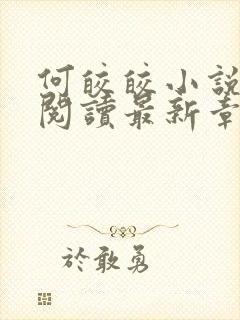 何皎皎小說
閱讀最新章
於敢勇